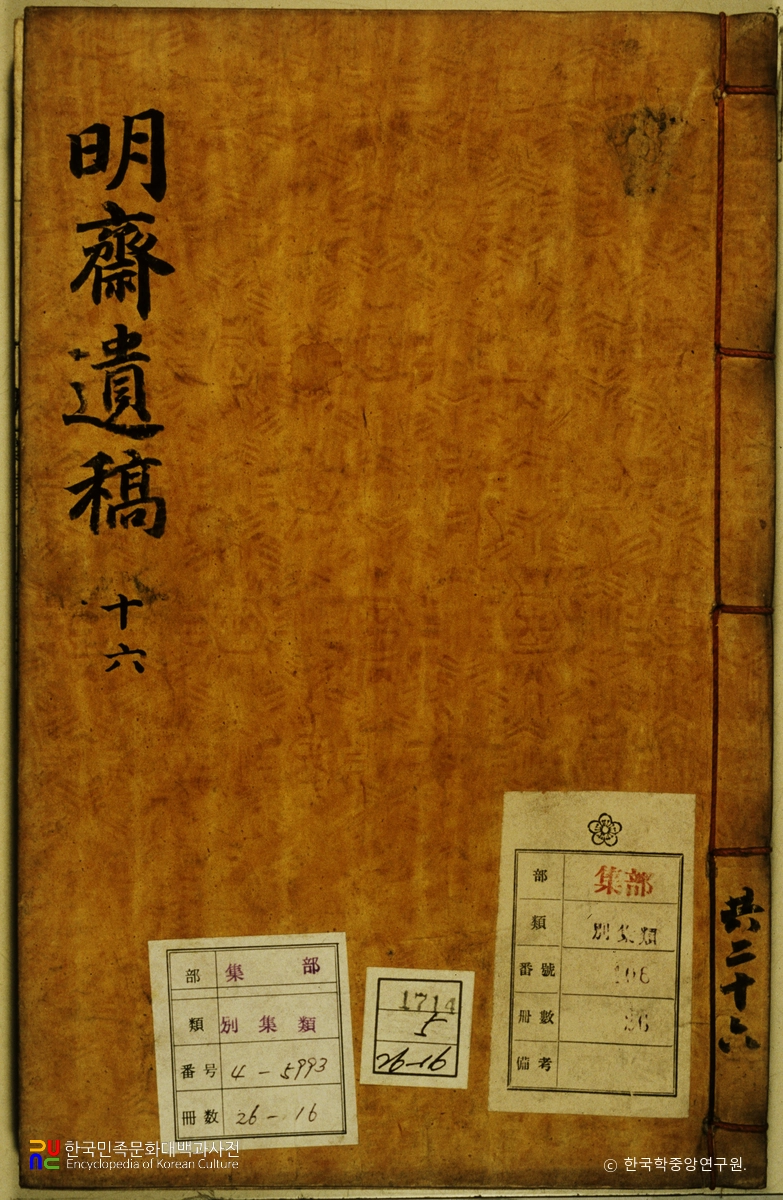 明齋遺稿
十六
共二十六
部 集部
類 別集類
番號 108
冊數 26
備考
部 集 部
類 別集類
番号 4-5993
冊数 26-16
1714
5
한국민족문화대백과사전
Encyclopedia of Korean Culture
© 한국학중앙연구원.